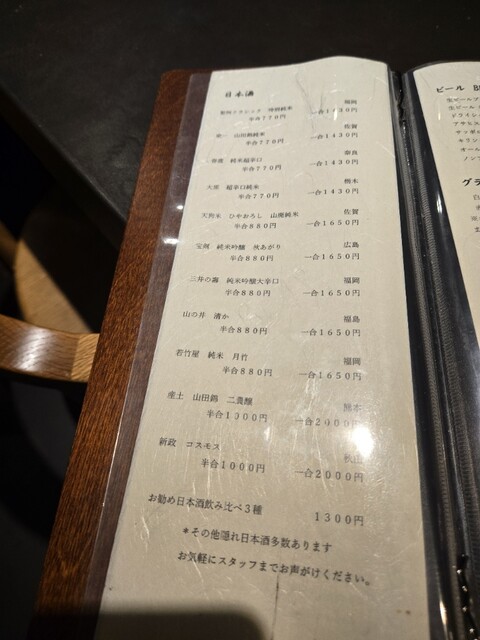 日本酒
特別純米 福岡
半合770円 一合1430円
山田錦純米 佐賀
半合770円 一合1430円
純米超辛口 奈良
半合770円 一合1430円
大那 超辛口純米 栃木
半合770円 一合1430円
天吹 ひやおろし 山廃純米 佐賀
半合880円 一合1650円
宝剣 純米吟醸 火あがり 広島
半合880円 一合1650円
三井の寿 純米吟醸大辛口 福岡
半合880円 一合1650円
山の井 福島
半合880円 一合1650円
若竹屋 純米 月竹 福岡
半合880円 一合1650円
産土 山田錦 二農醸 熊本
半合1000円 一合2000円
新政 コスモス 秋田
半合1000円 一合2000円
お勧め日本酒飲み比べ3種 1300円
*その他隠れ日本酒多数あります
お気軽にスタッフまでお声がけください。
ビール